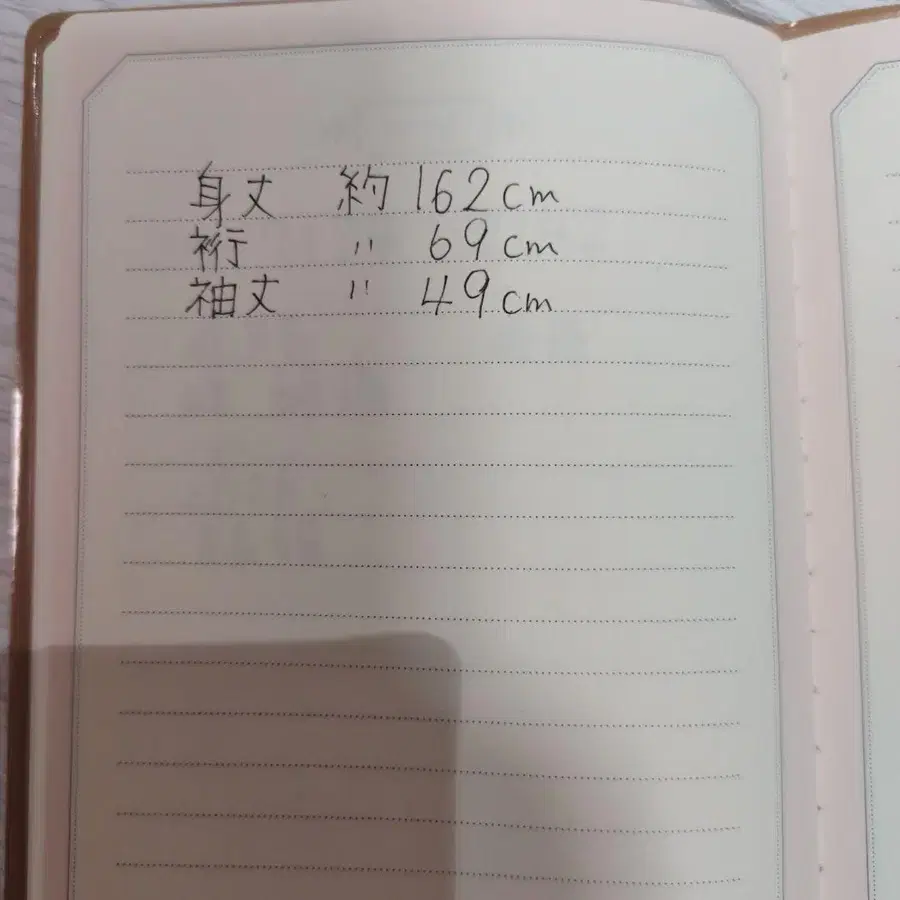 身丈 約 162cm
裄 〃 69cm
袖丈 〃 49cm